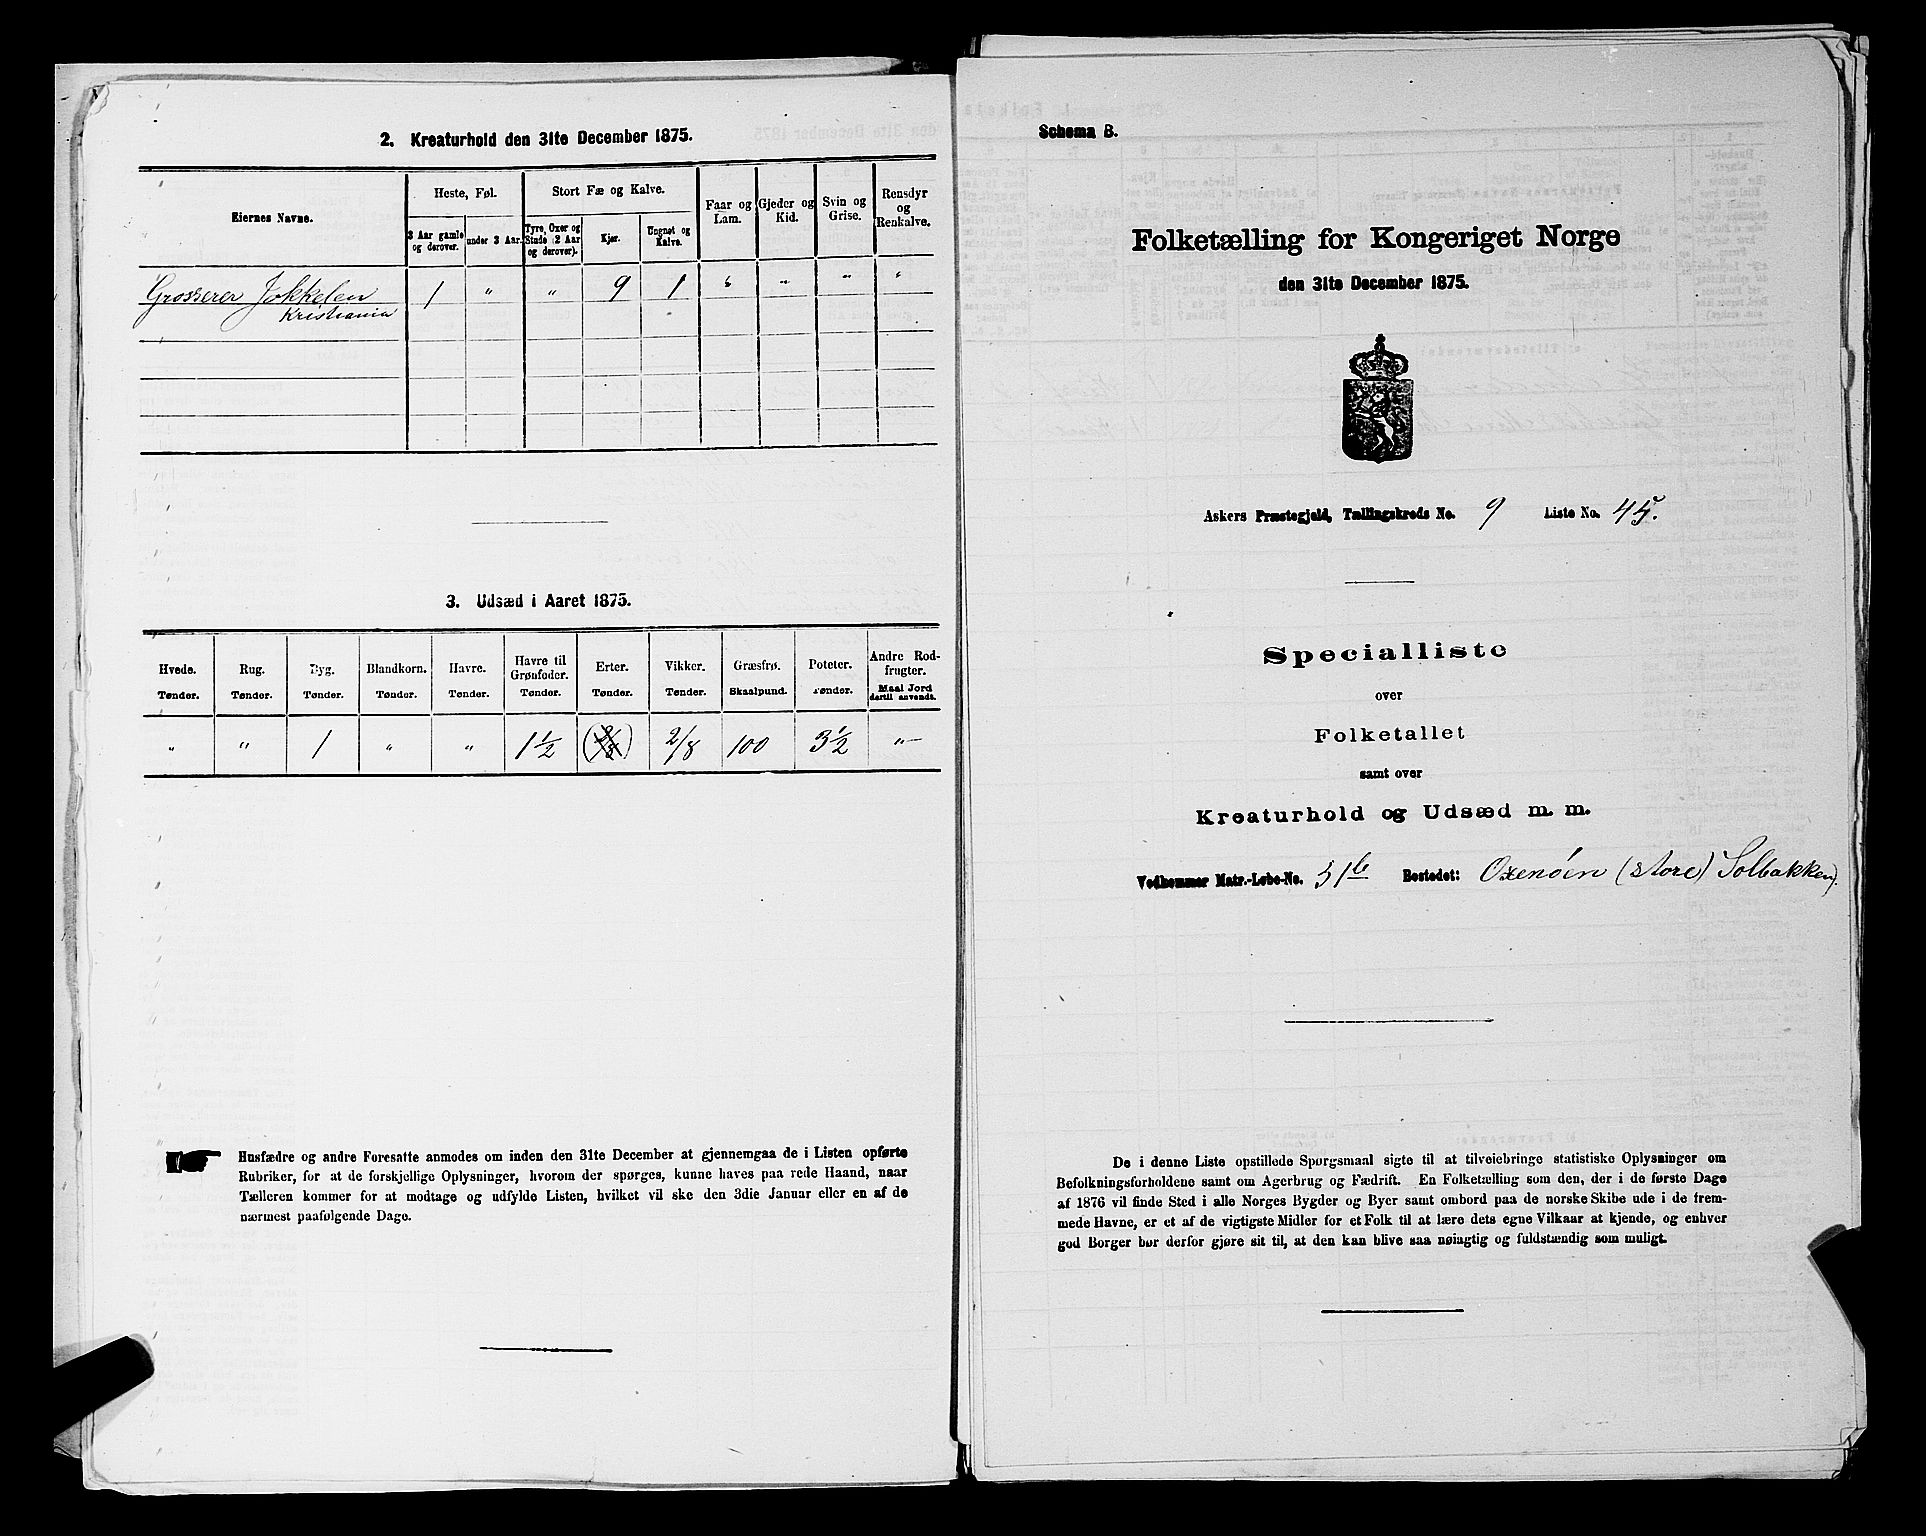 2. Kreaturhold den 31te December 1875.
Eiernes Navne.
Heste, Føl.
Stort Fæ og Kalve.
Faar og Lam.
Gjeder og Kid.
Svin og Grise.
Rensdyr og Renkalve.
3 Aar gamle og derover.
under 3 Aar.
Tyre, Oxer og Stude (2 Aar og derover).
Kjør.
Ungnøt og Kalve.
Grosserer Jokkelen 1 " " 9 1 " " " "
Kristiania
3. Udsæd i Aaret 1875.
Hvede. Rug. Byg. Blandkorn. Havre. Havre til Grønfoder. Erter. Vikker. Græsfrø. Poteter. Andre Rodfrugter.
Tønder. Tønder. Tønder. Tønder. Tønder. Tønder. Tønder. Tønder. Skaalpund. Tønder. Maal Jord dertil anvendt.
" " 1 " " 1 1/2 (2/8) 2/8 100 3 1/2 "
Husfædre og andre Foresatte anmodes om inden den 31te December at gjennemgaa de i Listen opførte
Rubriker, for at de forskjellige Oplysninger, hvorom der spørges, kunne haves paa rede Haand, naar
Tælleren kommer for at modtage og udfylde Listen, hvilket vil ske den 3die Januar eller en af de
nærmest paafølgende Dage.
Schema B.
Folketælling for Kongeriget Norge
den 31te December 1875.
Askers Præstegjeld, Tællingskreds No. 9 Liste No. 45.
Specialliste
over
Folketallet
samt over
Kreaturhold og Udsæd m. m.
Vedkommer Matr.-Løbe-No. 31b Bostedet: Oxenøen (store) Solbakken).
De i denne Liste opstillede Spørgsmaal sigte til at tilveiebringe statistiske Oplysninger om
Befolkningsforholdene samt om Agerbrug og Fædrift. En Folketælling som den, der i de første Dage
af 1876 vil finde Sted i alle Norges Bygder og Byer samt ombord paa de norske Skibe ude i frem-
mede Havne, er et af de vigtigste Midler for et Folk til at lære dets egne Vilkaar at kjende, og enhver
god Borger bør derfor gjøre sit til, at den kan blive saa nøiagtig og fuldstændig som muligt.